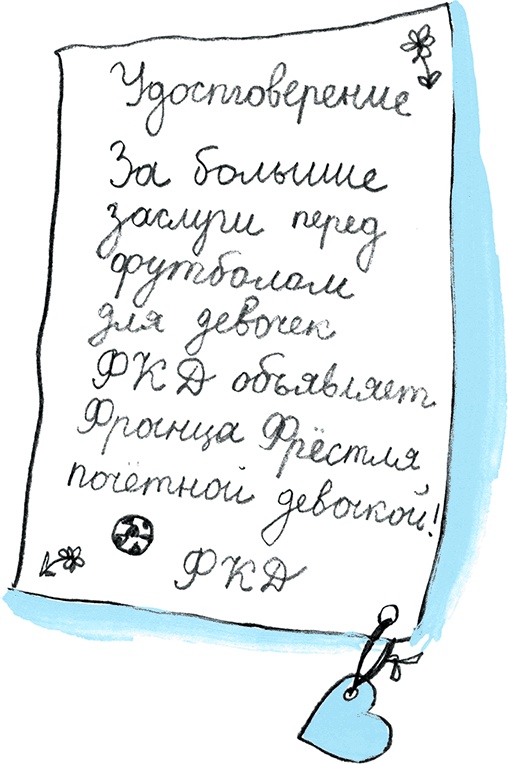 Удостоверение
За большие
заслуги перед
футболом
для девочек
ФКД объявляет
Франца Фрёстля
почётной девочкой!
ФКД